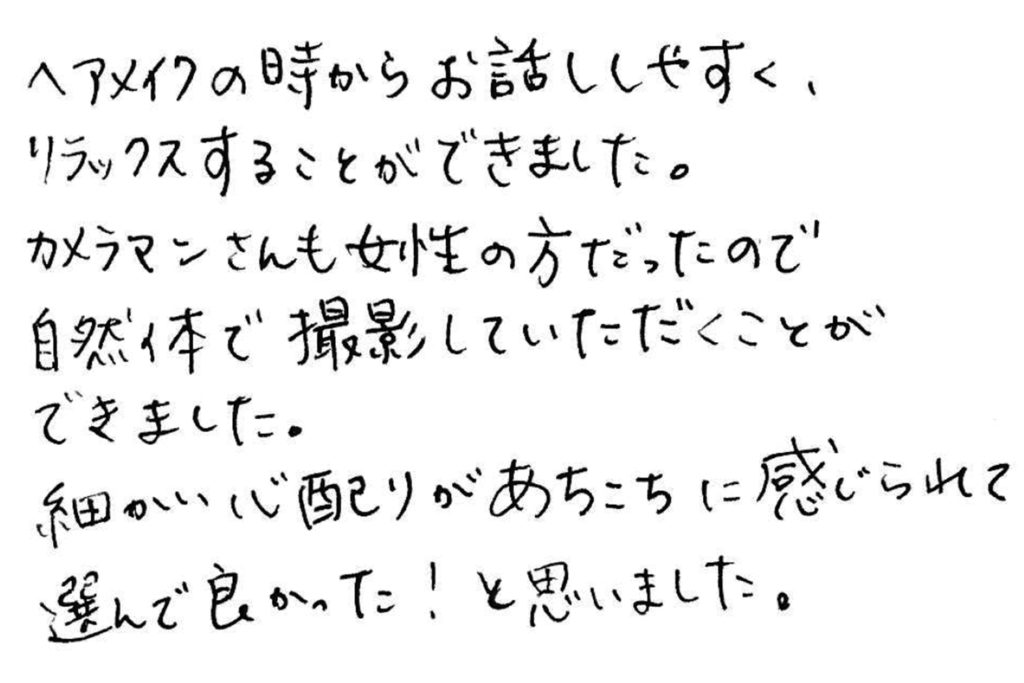 ヘアメイクの時からお話ししやすく、
リラックスすることができました。
カメラマンさんも女性の方だったので
自然体で撮影していただくことが
できました。
細かい心配りがあちこちに感じられて
選んで良かった！と思いました。